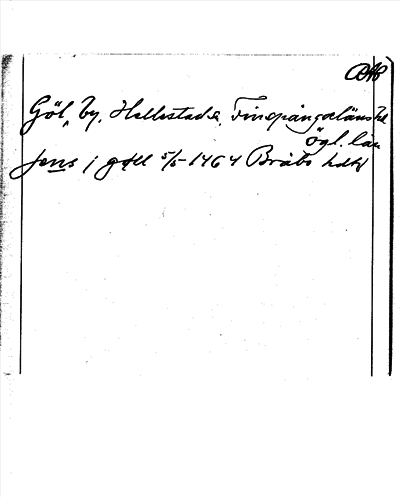 DAB
Göl, by, Hellestad s, Finspångalänshd
Ögl. län
Jens j gøll 5/5-1464 Bråbo hdkl